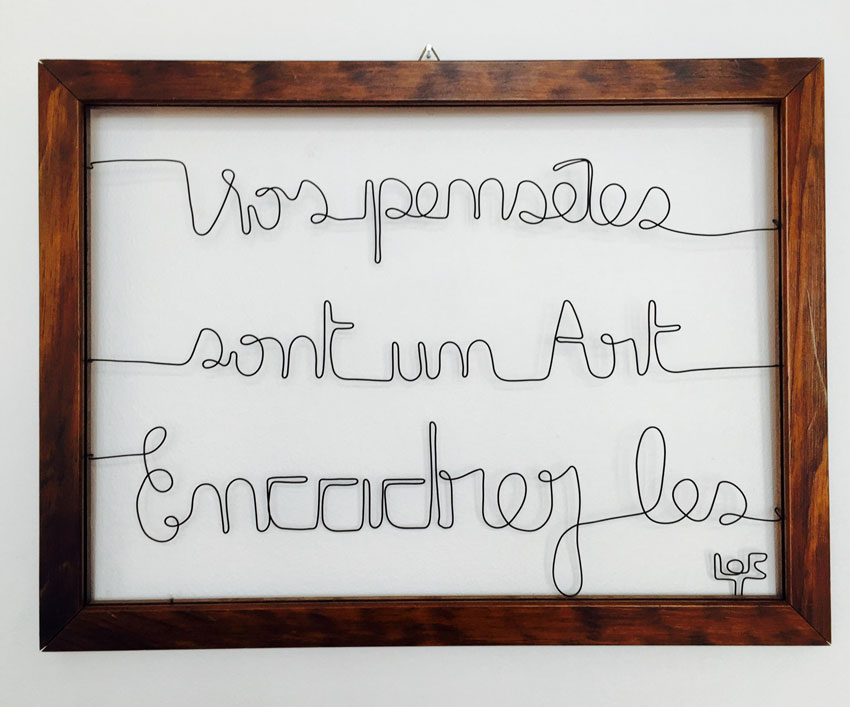 Vos pensées
sont un Art
Encadrez les